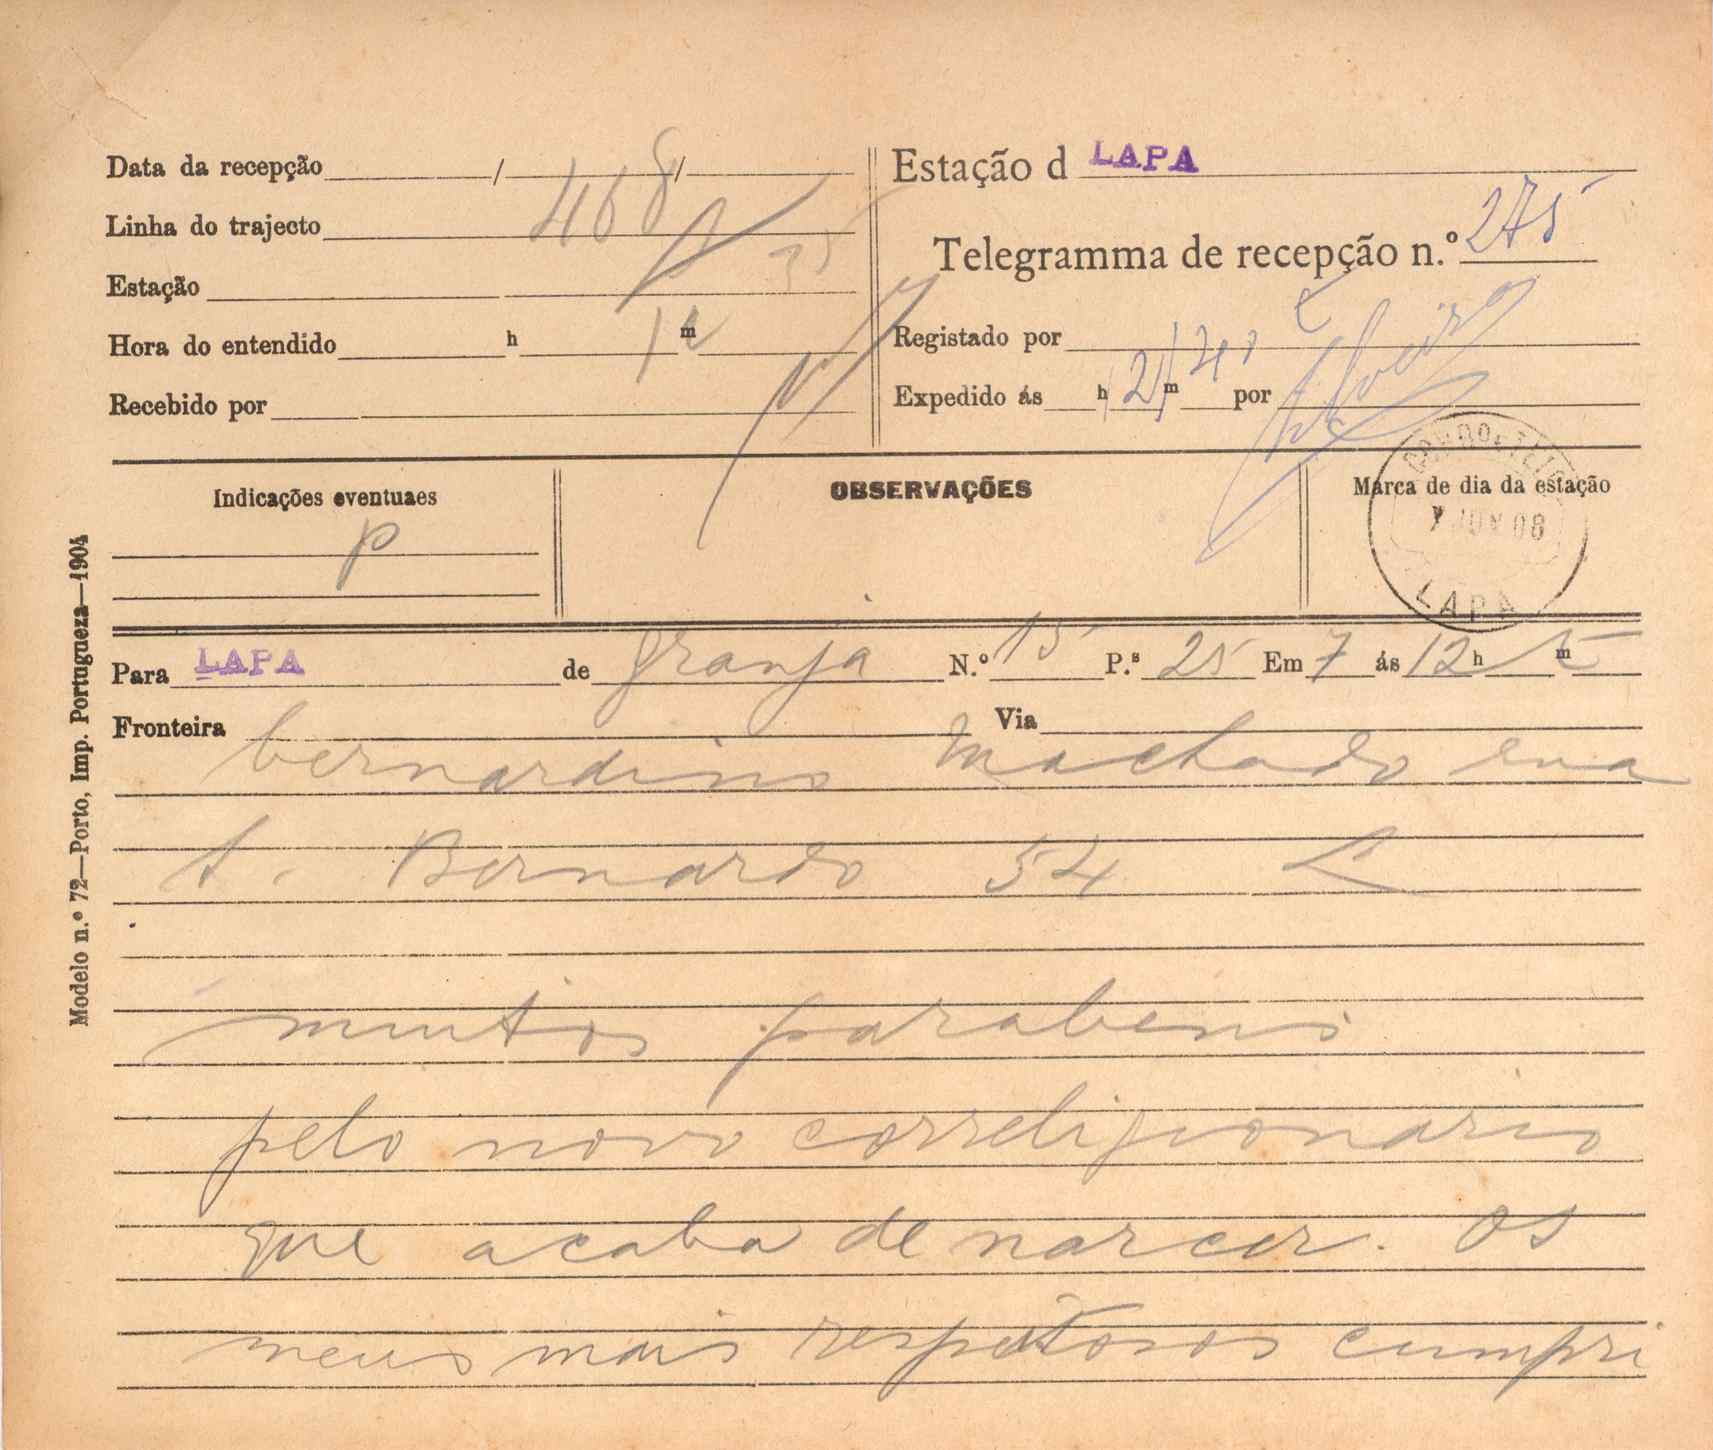 Data da recepção / /
Linha do trajecto 468
Estação
Hora do entendido h m
Recebido por
Estação d LAPA
Telegramma de recepção n.º 275
Registado por
Expedido ás h m por
Indicações eventuaes
P
OBSERVAÇÕES
Marca de dia da estação
7 JUN 08
LAPA
Modelo n.º 72—Porto, Imp. Portugueza—1904
Para LAPA de Granja N.º 15 P.s 25 Em 7 ás 12 h m
Fronteira Via
bernardino Machado rua
S. Bernardo 54 L
muitos parabens
pelo novo correligionario
que acaba de nascer. Os
meus mais respeitosos cumpri